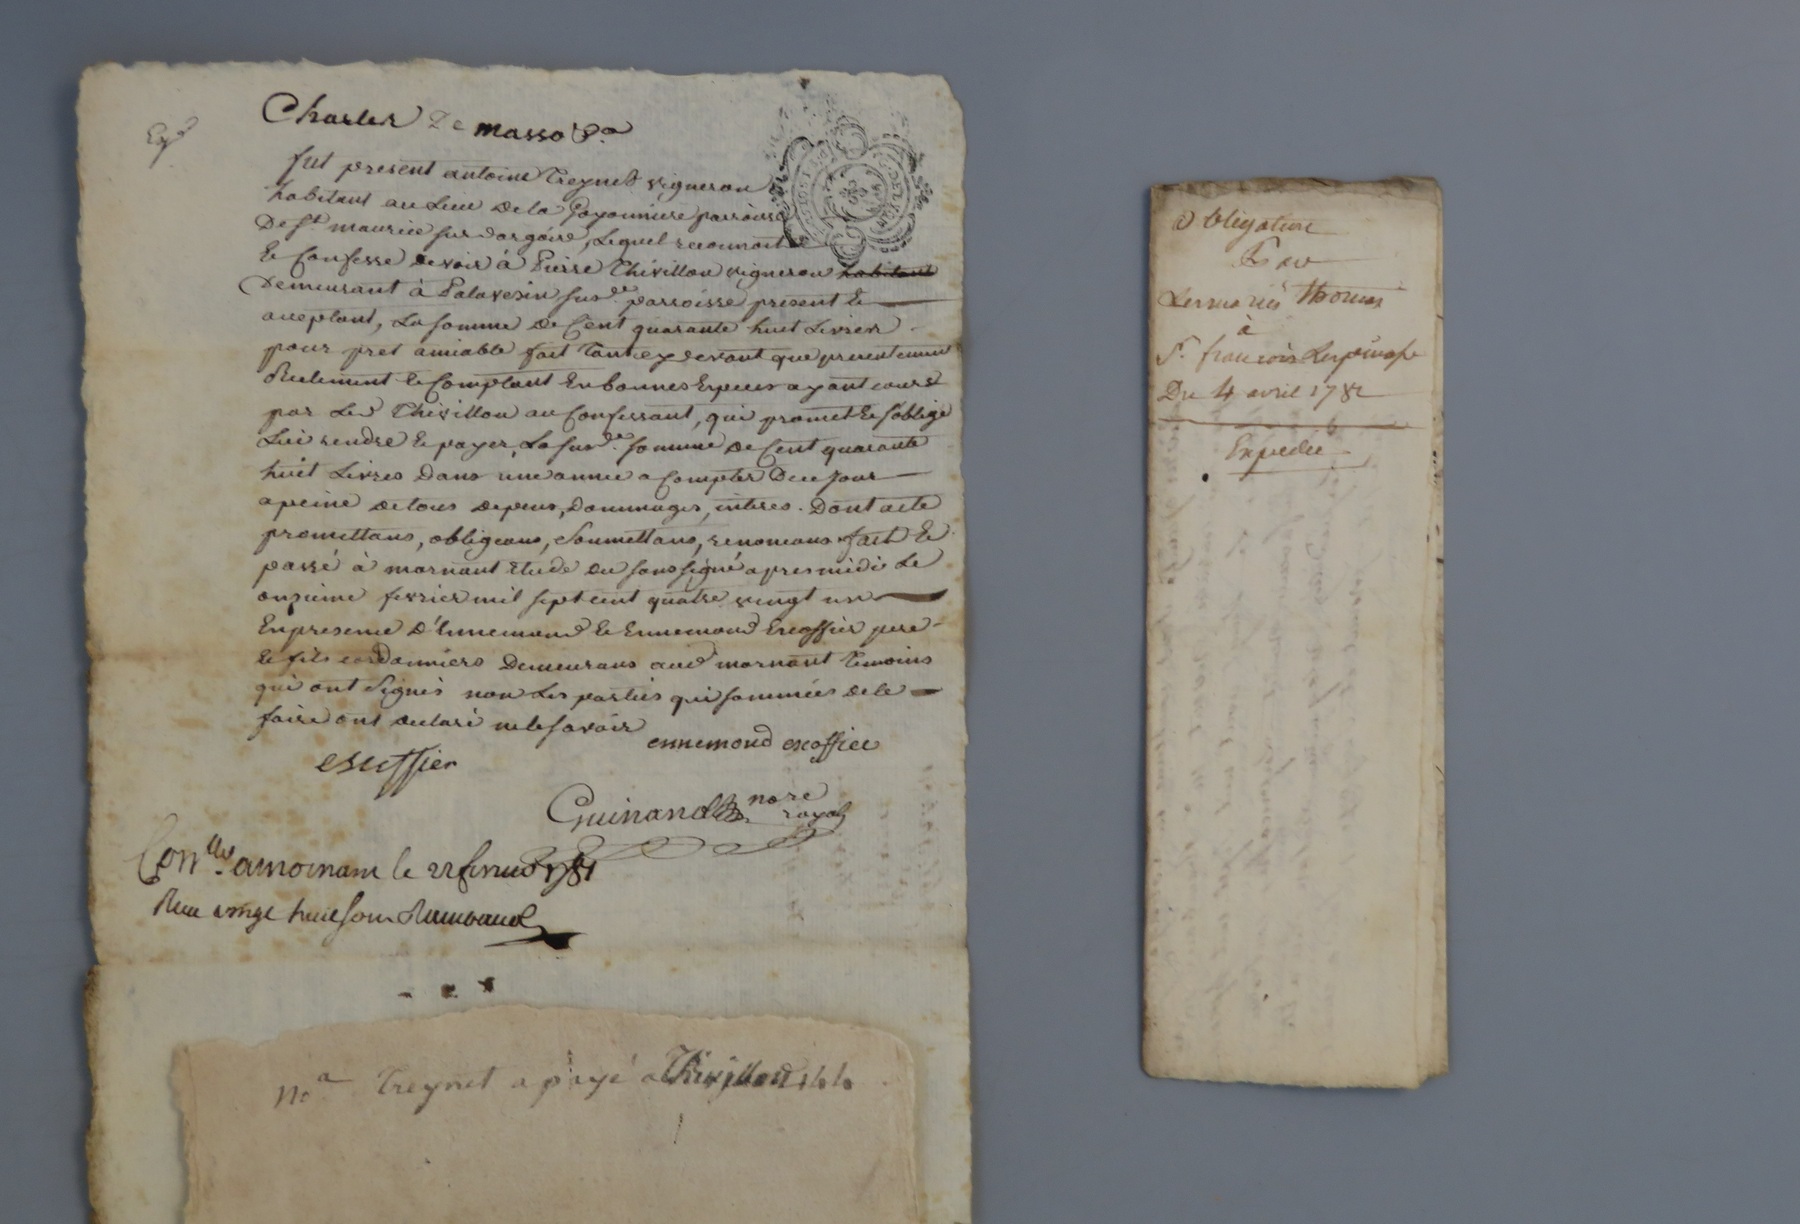 Exp.
Charles De masso &.a
fut present antoine Treynet vigneron
habitant au Lieu De la Gayonniere parroisse
De St. maurice sur dargoire, Lequel reconnoit
Et Confesse devoir à Pierre Thivillon vigneron habitant
Demeurant à Palavesin susd.e parroisse present Et
aceptant, La somme De Cent quarante huit Livres
pour pret amiable fait tant cy devant que presentement
Reelement Et Comptant En bonnes Especes ayant cours
par Led Thivillon au Confessant, qui promet Et s'oblige
Lui rendre Et payer, La susd.e somme De Cent quarante
huit Livres Dans une année a Compter De ce jour
a peine de tous depens, Dommages, interes. Dont acte
promettans, obligeans, Soumettans, renonceans fait Et
passé à mornant Etude du sous signé apres midi Le
onzieme fevrier mil sept cent quatre vingt un
En presence D'Ennemond Et Ennemond Escoffier pere
Et fils cordonniers Demeurans aud mornant Temoins
qui ont signés non Les parties qui sommées de le
faire ont declaré ne le savoir
ennemond escoffier
escuffier
Guinand no.re
royal
Con.lle a mornant le 22 fevrier 1781
Recu vingt huit sous
No.a Treynet a payé a Thivillon 144
Obligation
Par
Les mariés thomas
à
Sr. francois
Du 4 avril 1782
Expediée